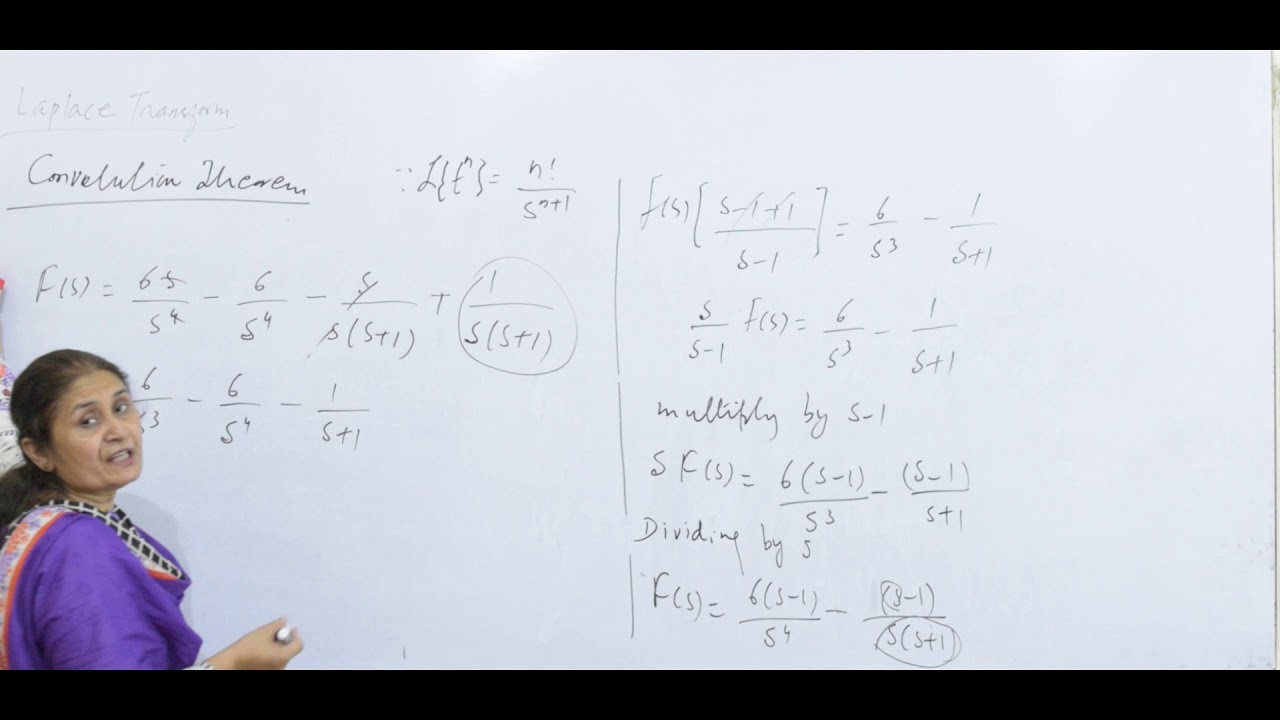 Laplace Transform
Convolution Theorem
∵ L{t^n} = n!/s^(n+1)
F(s) = 6s/s^4 - 6/s^4 - s/(s(s+1)) + 1/(s(s+1))
6/s^3 - 6/s^4 - 1/(s+1)
F(s)[(s-1+1)/(s-1)] = 6/s^3 - 1/(s+1)
s/(s-1) F(s) = 6/s^3 - 1/(s+1)
multiply by s-1
S F(s) = 6(s-1)/s^3 - (s-1)/(s+1)
Dividing by s
F(s) = 6(s-1)/s^4 - (s-1)/(s(s+1)